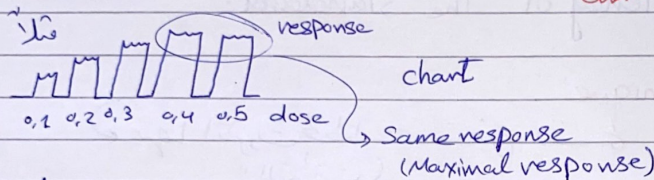 مثلاً
response
chart
0,1 0,2 0,3 0,4 0,5 dose
Same response
(Maximal response)